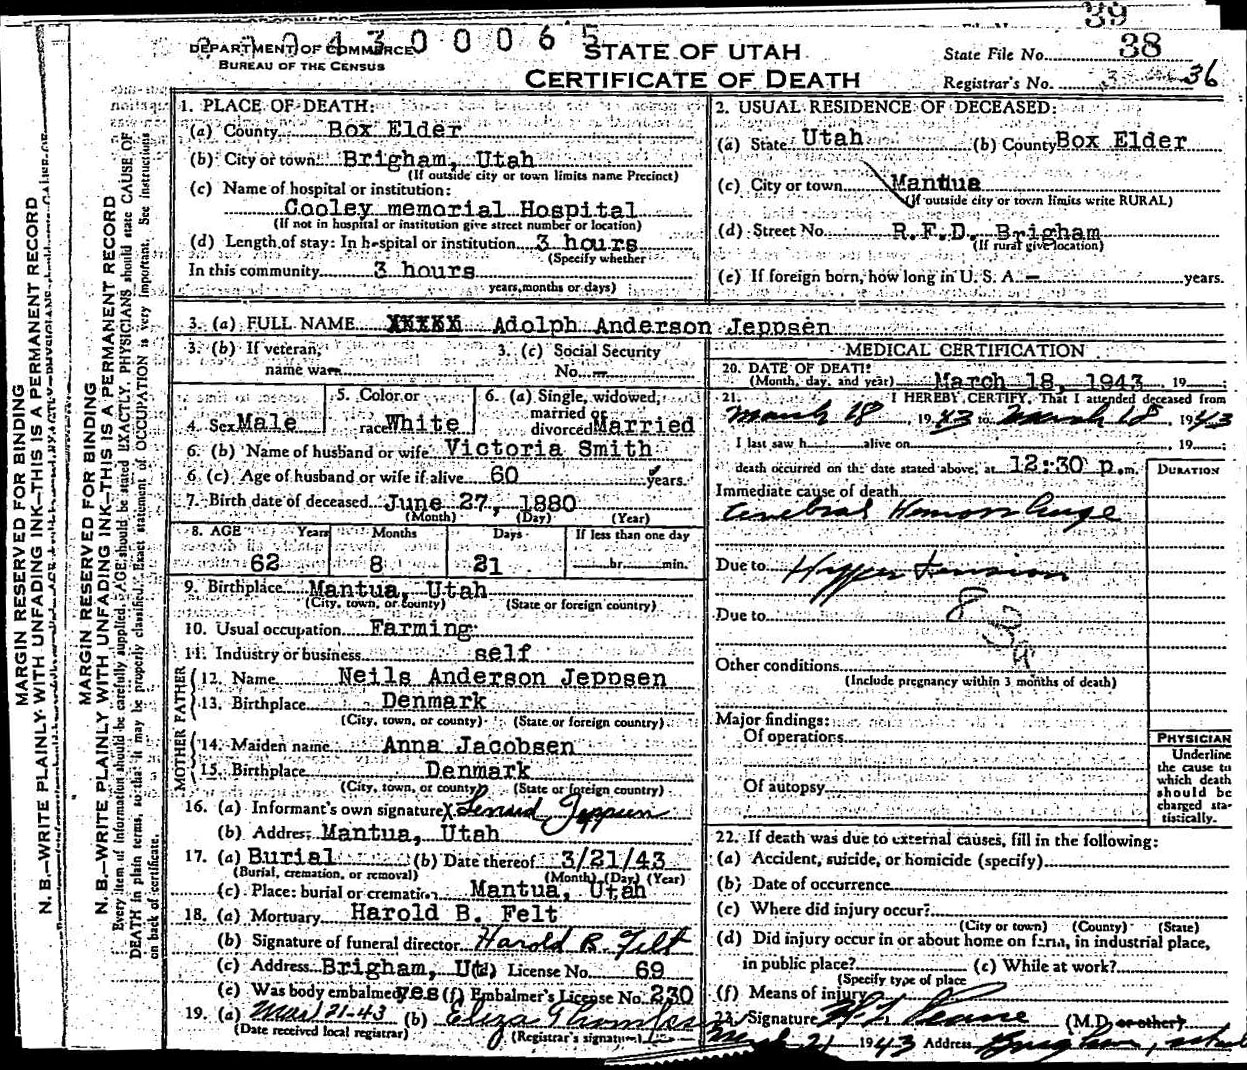 39
0 4 3 0 0 0 6 5
DEPARTMENT OF COMMERCE
BUREAU OF THE CENSUS
STATE OF UTAH
CERTIFICATE OF DEATH
State File No. 38
Registrar's No. 36
MARGIN RESERVED FOR BINDING
N. B.—WRITE PLAINLY WITH UNFADING INK—THIS IS A PERMANENT RECORD
MARGIN RESERVED FOR BINDING
N. B.—WRITE PLAINLY WITH UNFADING INK—THIS IS A PERMANENT RECORD
Every item of information should be carefully supplied. AGE should be stated EXACTLY. PHYSICIANS should state CAUSE OF
DEATH in plain terms, so that it may be properly classified. Exact statement of OCCUPATION is very important. See instructions
on back of certificate.
1. PLACE OF DEATH:
(a) County Box Elder
(b) City or town Brigham, Utah
(If outside city or town limits name Precinct)
(c) Name of hospital or institution:
Cooley memorial Hospital
(If not in hospital or institution give street number or location)
(d) Length of stay: In hospital or institution 3 hours
(Specify whether
In this community 3 hours
years, months or days)
2. USUAL RESIDENCE OF DECEASED:
(a) State Utah (b) County Box Elder
(c) City or town Mantua
(If outside city or town limits write RURAL)
(d) Street No. R.F.D. Brigham
(If rural give location)
(e) If foreign born, how long in U. S. A. — years.
3. (a) FULL NAME XXXXX Adolph Anderson Jeppsen
3. (b) If veteran, name war
3. (c) Social Security No. —
4. Sex Male
5. Color or race White
6. (a) Single, widowed, married or divorced Married
6. (b) Name of husband or wife Victoria Smith
6 (c) Age of husband or wife if alive 60 years.
7. Birth date of deceased June 27, 1880
(Month) (Day) (Year)
8. AGE Years Months Days If less than one day
62 8 21 hr. min.
9. Birthplace Mantua, Utah
(City, town, or county) (State or foreign country)
10. Usual occupation Farming
11. Industry or business self
FATHER
12. Name Neils Anderson Jeppsen
13. Birthplace Denmark
(City, town, or county) (State or foreign country)
MOTHER
14. Maiden name Anna Jacobsen
15. Birthplace Denmark
(City, town, or county) (State or foreign country)
16. (a) Informant's own signature X Jeppsen
(b) Address Mantua, Utah
17. (a) Burial (b) Date thereof 3/21/43
(Burial, cremation, or removal) (Month) (Day) (Year)
(c) Place: burial or cremation Mantua, Utah
18. (a) Mortuary Harold B. Felt
(b) Signature of funeral director Harold B. Felt
(c) Address Brigham, U (d) License No. 69
(e) Was body embalmed yes (f) Embalmer's License No. 230
19. (a) Mar 21-43 (b) Eliza Thompson
(Date received local registrar) (Registrar's signature)
MEDICAL CERTIFICATION
20. DATE OF DEATH:
(Month, day, and year) March 18, 1943, 19
21. I HEREBY CERTIFY, That I attended deceased from
March 18, 1943 to March 18, 1943
I last saw h alive on 19
death occurred on the date stated above, at 12:30 p.m.
DURATION
Immediate cause of death
Cerebral Hemorrhage
Due to Hypertension
Due to
83a
Other conditions
(Include pregnancy within 3 months of death)
Major findings:
Of operations
Of autopsy
PHYSICIAN
Underline
the cause to
which death
should be
charged sta-
tistically.
22. If death was due to external causes, fill in the following:
(a) Accident, suicide, or homicide (specify)
(b) Date of occurrence
(c) Where did injury occur?
(City or town) (County) (State)
(d) Did injury occur in or about home on farm, in industrial place,
in public place? (e) While at work?
(Specify type of place
(f) Means of injury
23. Signature (M.D. or other)
March 21 1943 Address Brigham, Utah